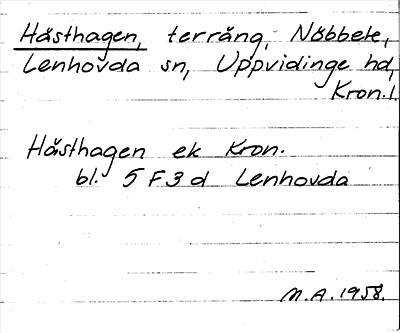 Hästhagen, terräng, Nöbbele,
Lenhovda sn, Uppvidinge hd,
Kron.l.
Hästhagen ek Kron.
bl. 5 F 3 d Lenhovda
M.A. 1958.